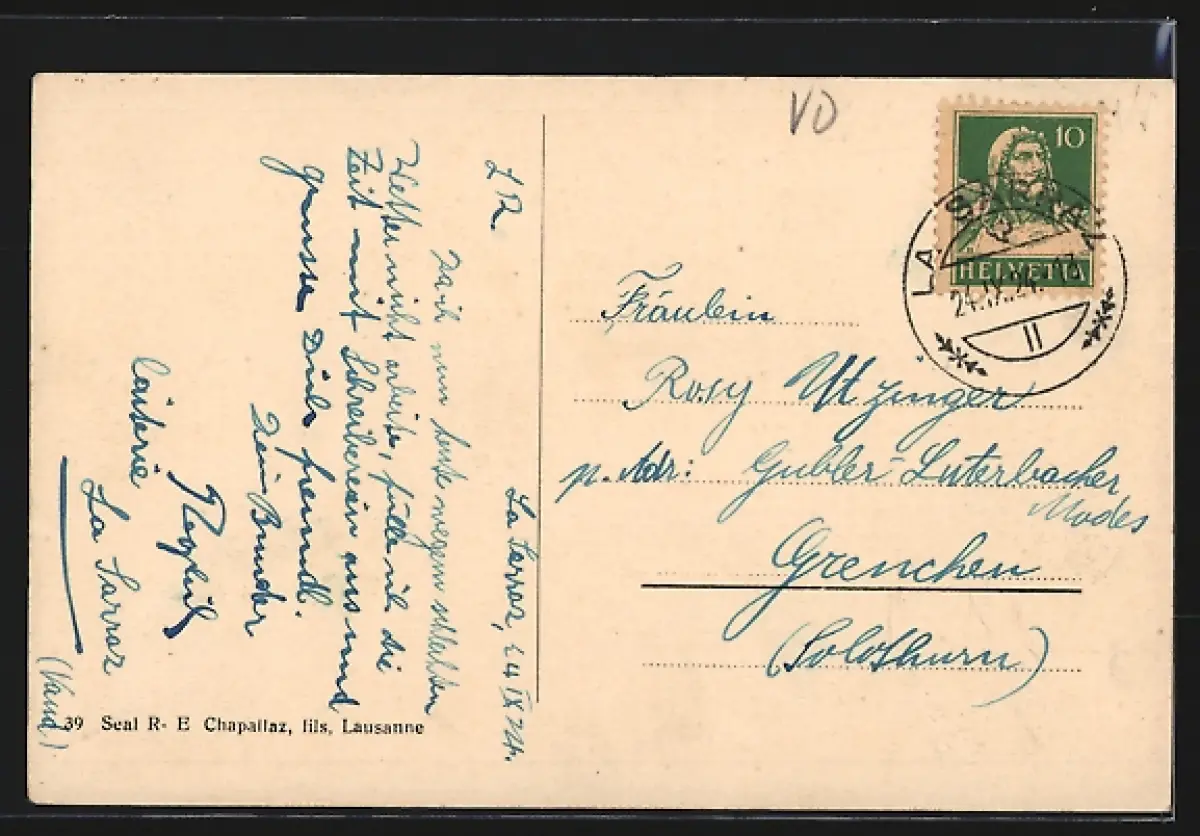 VD
10
HELVETIA
LA SARRAZ
24.IX.24. 13
II
Fräulein
Rosy Utzinger
p. Adr: Gubler-Luterbacher
Modes
Grenchen
(Solothurn)
La Sarraz, 24 IX 24.
L R.
Da ich nun heute wegen schlechten
Wetter nicht arbeite, fülle ich die
Zeit mit Schreibereien aus und
grüsse Dich freundl.
Dein Bruder
Laiterie
La Sarraz
(Vaud)
39 Seal R- E Chapallaz, fils, Lausanne